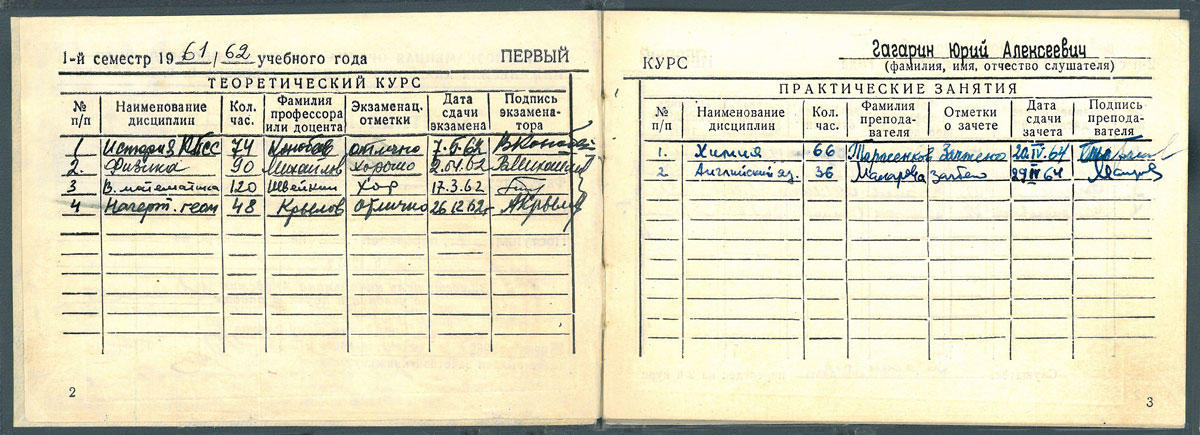 1-й семестр 1961/62 учебного года ПЕРВЫЙ
ТЕОРЕТИЧЕСКИЙ КУРС
№ п/п Наименование дисциплин Кол. час. Фамилия профессора или доцента Экзаменац. отметки Дата сдачи экзамена Подпись экзамена-тора
1 История КПСС 74 отлично
2. Физика 90 Михайлов хорошо
3 В. математика 120 Швейкин хор 17.3.62
4 Начерт. геом 48 Крылов отлично
2
КУРС Гагарин Юрий Алексеевич
(фамилия, имя, отчество слушателя)
ПРАКТИЧЕСКИЕ ЗАНЯТИЯ
№ п/п Наименование дисциплин Кол. час. Фамилия препода-вателя Отметки о зачете Дата сдачи зачета Подпись препода-вателя
1. Химия 66 Тарасенков Зачтено
2. Английский яз. 36 Макарова зачтено 29 IV 64
3